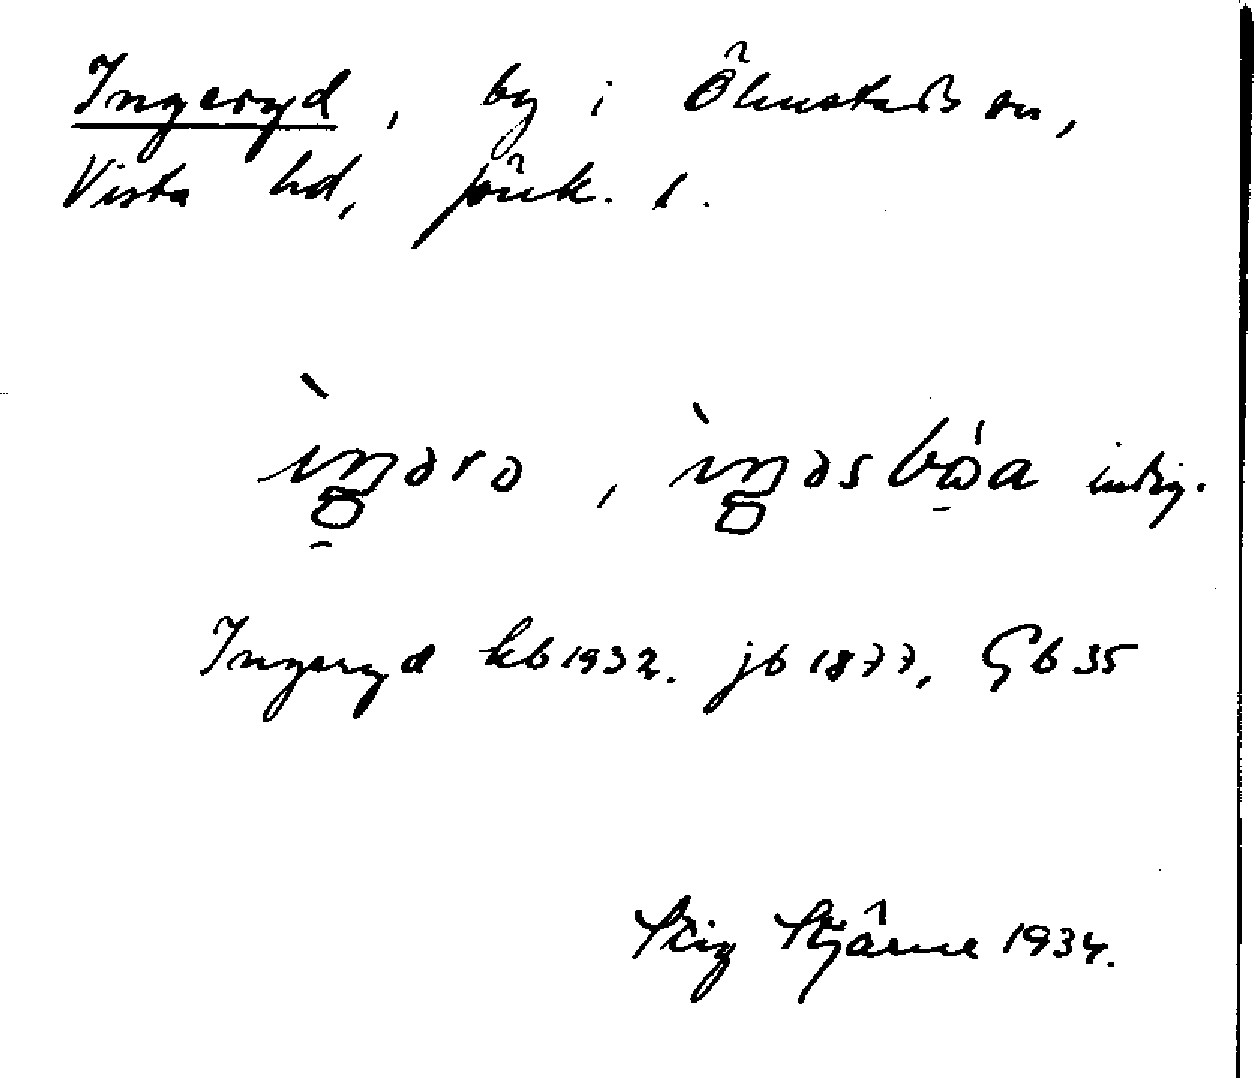 Ingeryd, by i Ölmstads sn,
Vista hd, Jönk. l.
ìŋərə, ìŋəsbóa indig.
Ingeryd kb 1932. jb 1877, Gb 35
Stig Stjärne 1934.